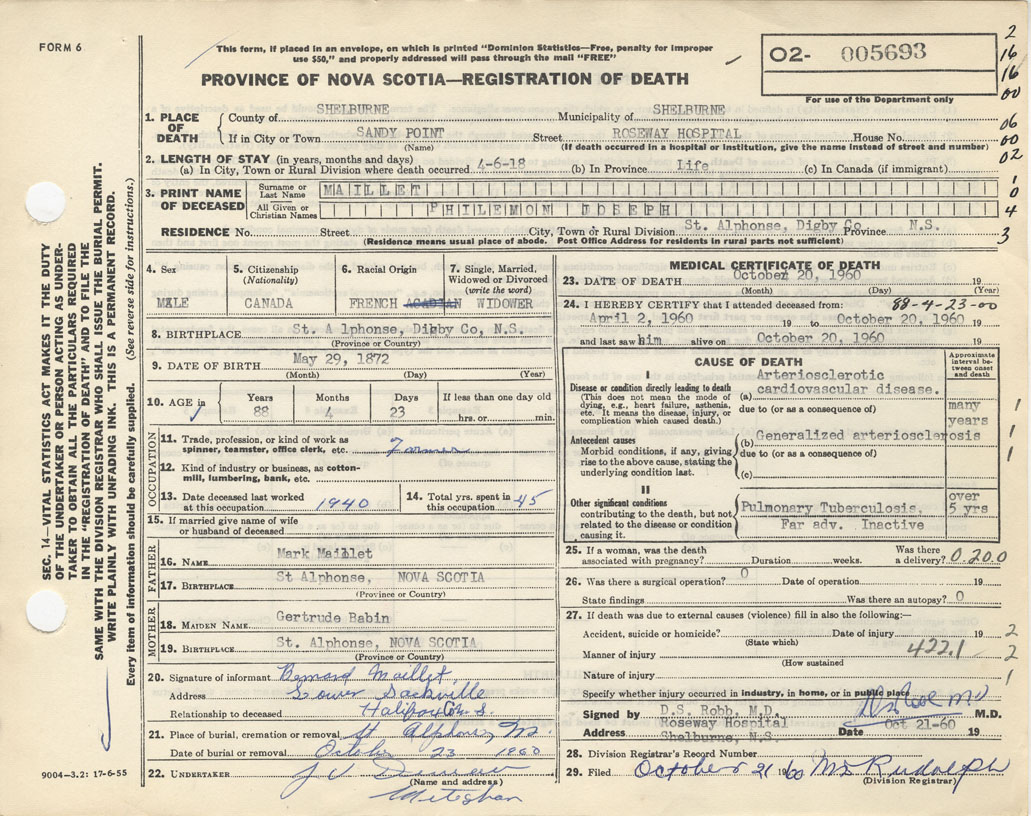 FORM 6
This form, if placed in an envelope, on which is printed "Dominion Statistics—Free, penalty for improper
use $50," and properly addressed will pass through the mail "FREE"
PROVINCE OF NOVA SCOTIA—REGISTRATION OF DEATH
O2- 005693
For use of the Department only
2
16
16
00
06
00
02
1
0
4
3
SEC. 14—VITAL STATISTICS ACT MAKES IT THE DUTY
OF THE UNDERTAKER OR PERSON ACTING AS UNDER-
TAKER TO OBTAIN ALL THE PARTICULARS REQUIRED
IN THE "REGISTRATION OF DEATH" AND TO FILE THE
SAME WITH THE DIVISION REGISTRAR WHO SHALL ISSUE THE BURIAL PERMIT.
WRITE PLAINLY WITH UNFADING INK. THIS IS A PERMANENT RECORD.
Every item of information should be carefully supplied. (See reverse side for instructions.)
1. PLACE OF DEATH
County of SHELBURNE Municipality of SHELBURNE
If in City or Town SANDY POINT Street ROSEWAY HOSPITAL House No.
(Name) (If death occurred in a hospital or institution, give the name instead of street and number)
2. LENGTH OF STAY (in years, months and days)
(a) In City, Town or Rural Division where death occurred 4-6-18 (b) In Province Life (c) In Canada (if immigrant)
3. PRINT NAME OF DECEASED
Surname or Last Name MAILLET
All Given or Christian Names PHILEMON JOSEPH
RESIDENCE No. Street City, Town or Rural Division St. Alphonse, Digby Co. Province N.S.
(Residence means usual place of abode. Post Office Address for residents in rural parts not sufficient)
4. Sex 5. Citizenship (Nationality) 6. Racial Origin 7. Single, Married, Widowed or Divorced (write the word)
MALE CANADA FRENCH ACADIAN WIDOWER
8. BIRTHPLACE St. A lphonse, Digby Co, N.S.
(Province or Country)
9. DATE OF BIRTH May 29, 1872
(Month) (Day) (Year)
10. AGE in Years Months Days If less than one day old
88 4 23 hrs. or min.
OCCUPATION
11. Trade, profession, or kind of work as
spinner, teamster, office clerk, etc. Farmer
12. Kind of industry or business, as cotton-
mill, lumbering, bank, etc.
13. Date deceased last worked
at this occupation 1940
14. Total yrs. spent in
this occupation 45
15. If married give name of wife
or husband of deceased
FATHER
16. NAME Mark Maillet
17. BIRTHPLACE St Alphonse, NOVA SCOTIA
(Province or Country)
MOTHER
18. MAIDEN NAME Gertrude Babin
19. BIRTHPLACE St. Alphonse, NOVA SCOTIA
(Province or Country)
20. Signature of informant Bernard Maillet
Address Lower Sackville
Relationship to deceased Halifax Co N.S.
21. Place of burial, cremation or removal St Alphonse,
Date of burial or removal October 23 1960
22. UNDERTAKER
(Name and address)
Meteghan
9004—3.2: 17-6-55
MEDICAL CERTIFICATE OF DEATH
23. DATE OF DEATH October 20, 1960 19
(Month) (Day) (Year)
24. I HEREBY CERTIFY that I attended deceased from: 88-4-23-00
April 2, 1960 19 to October 20, 1960 19
and last saw him alive on October 20, 1960 19
CAUSE OF DEATH
Approximate interval between onset and death
I
Disease or condition directly leading to death
(This does not mean the mode of
dying, e.g., heart failure, asthenia,
etc. It means the disease, injury, or
complication which caused death.)
(a) Arteriosclerotic
cardiovascular disease.
due to (or as a consequence of)
many
years
Antecedent causes
Morbid conditions, if any, giving
rise to the above cause, stating the
underlying condition last.
(b) Generalized arteriosclerosis
due to (or as a consequence of)
(c)
1
1
1
II
Other significant conditions
contributing to the death, but not
related to the disease or condition
causing it.
Pulmonary Tuberculosis.
Far adv. Inactive
over
5 yrs
25. If a woman, was the death
associated with pregnancy? Duration weeks. Was there
a delivery? 0.200
26. Was there a surgical operation? 0 Date of operation 19
State findings Was there an autopsy? 0
27. If death was due to external causes (violence) fill in also the following:—
Accident, suicide or homicide? Date of injury 19 2
(State which)
Manner of injury 422.1 2
(How sustained
Nature of injury 1
Specify whether injury occurred in industry, in home, or in public place
Signed by D.S. Robb, M.D. M.D.
Roseway Hospital
Address Shelburne, N.S. Date Oct 21-60 19
28. Division Registrar's Record Number
29. Filed October 21 1960 Rudolph
(Division Registrar)